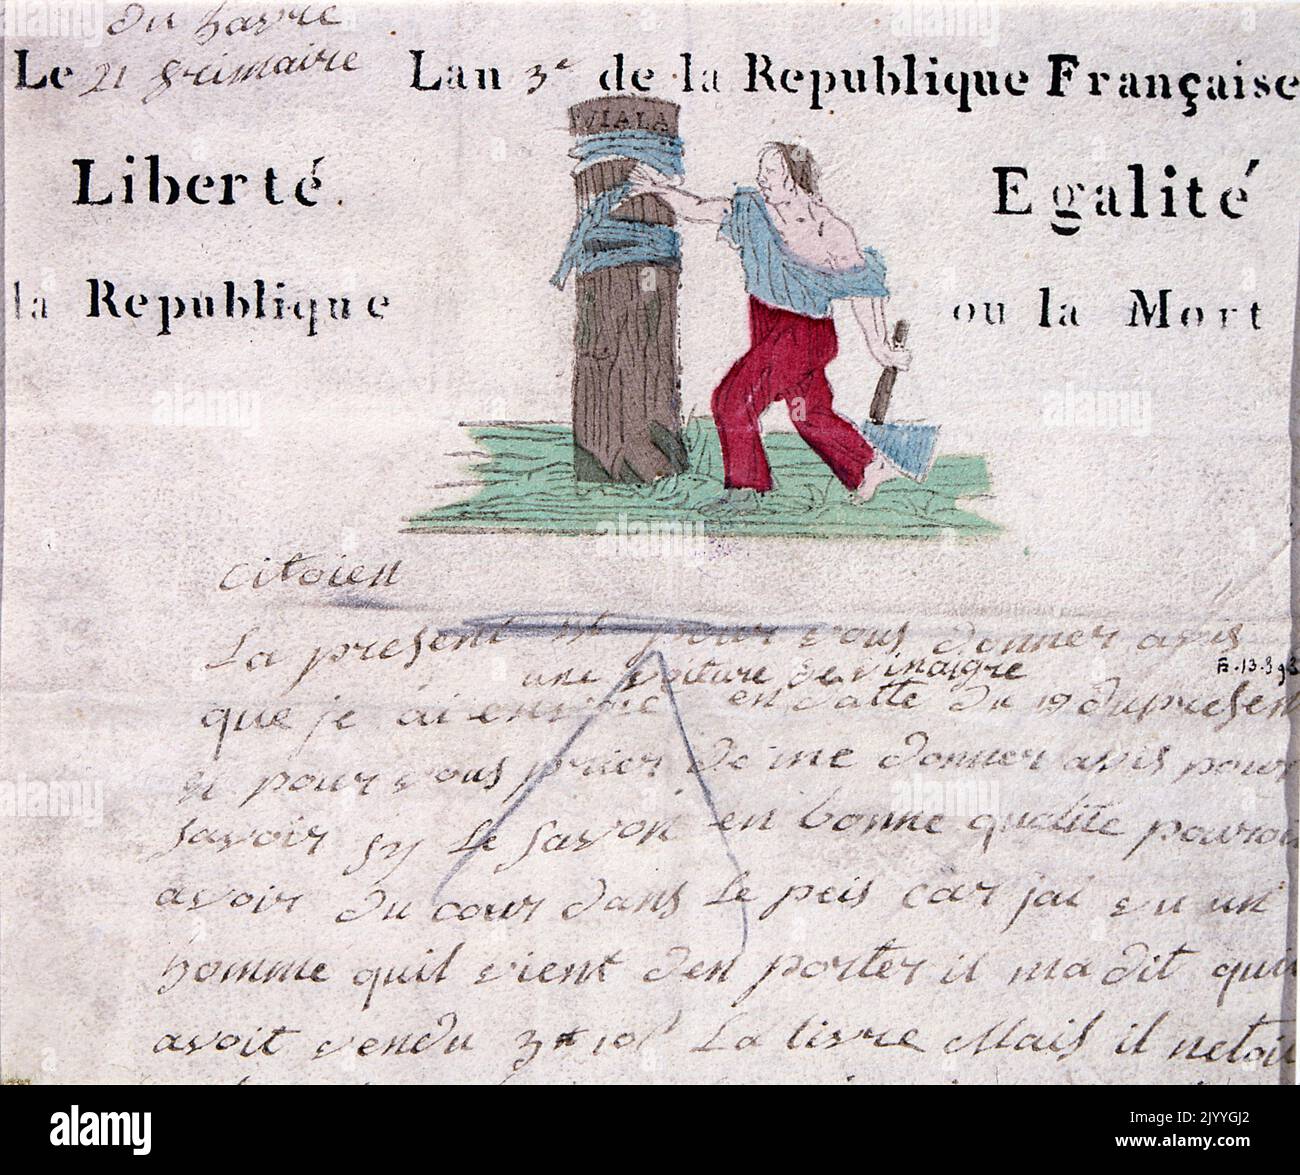 Du havre
Le 21 frimaire Lan 3e de la Republique Française
VIALA
Liberté Egalité
la Republique ou la Mort
citoien
La present est pour vous donner avis
une voiture de vinaigre
que je ai envoié en datte du 19 du present
et pour vous prier de me donner avis pour
savoir sy le savon en bonne qualite pouroi
avoir du cour dans le peis car jai vu un
homme quil vient den porter il ma dit quil
avoit vendu 3# 10s La livre Mais il netoi
alamy
Image ID: 2JYYGJ2
www.alamy.com